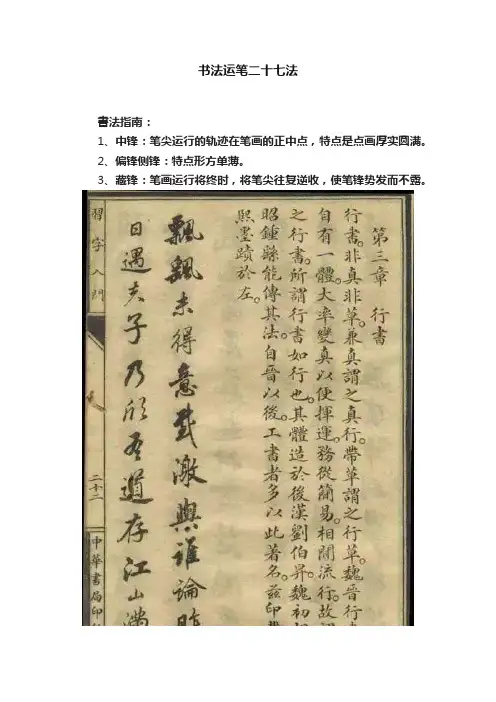 书法运笔二十七法
書法指南：
1、中锋：笔尖运行的轨迹在笔画的正中点，特点是点画厚实圆满。
2、偏锋侧锋：特点形方单薄。
3、藏锋：笔画运行将终时，将笔尖往复逆收，使笔锋势发而不露。
第三章 行書
行書。非真非草。兼真謂之真行。帶草謂之行草。魏晉行
自有一體。大率變真以便揮運。務從簡易。相間流行。故
之行書。所謂行書如行也。其體造於後漢劉伯昇。魏初
昭鍾繇能傳其法。自晉以後。工書者多以此著名。茲印
熙墨蹟於左。
飄飄未得意感激與誰論昨
日遇夫子乃欣吾道存江山滿
習字入門
二十二
中華書局印